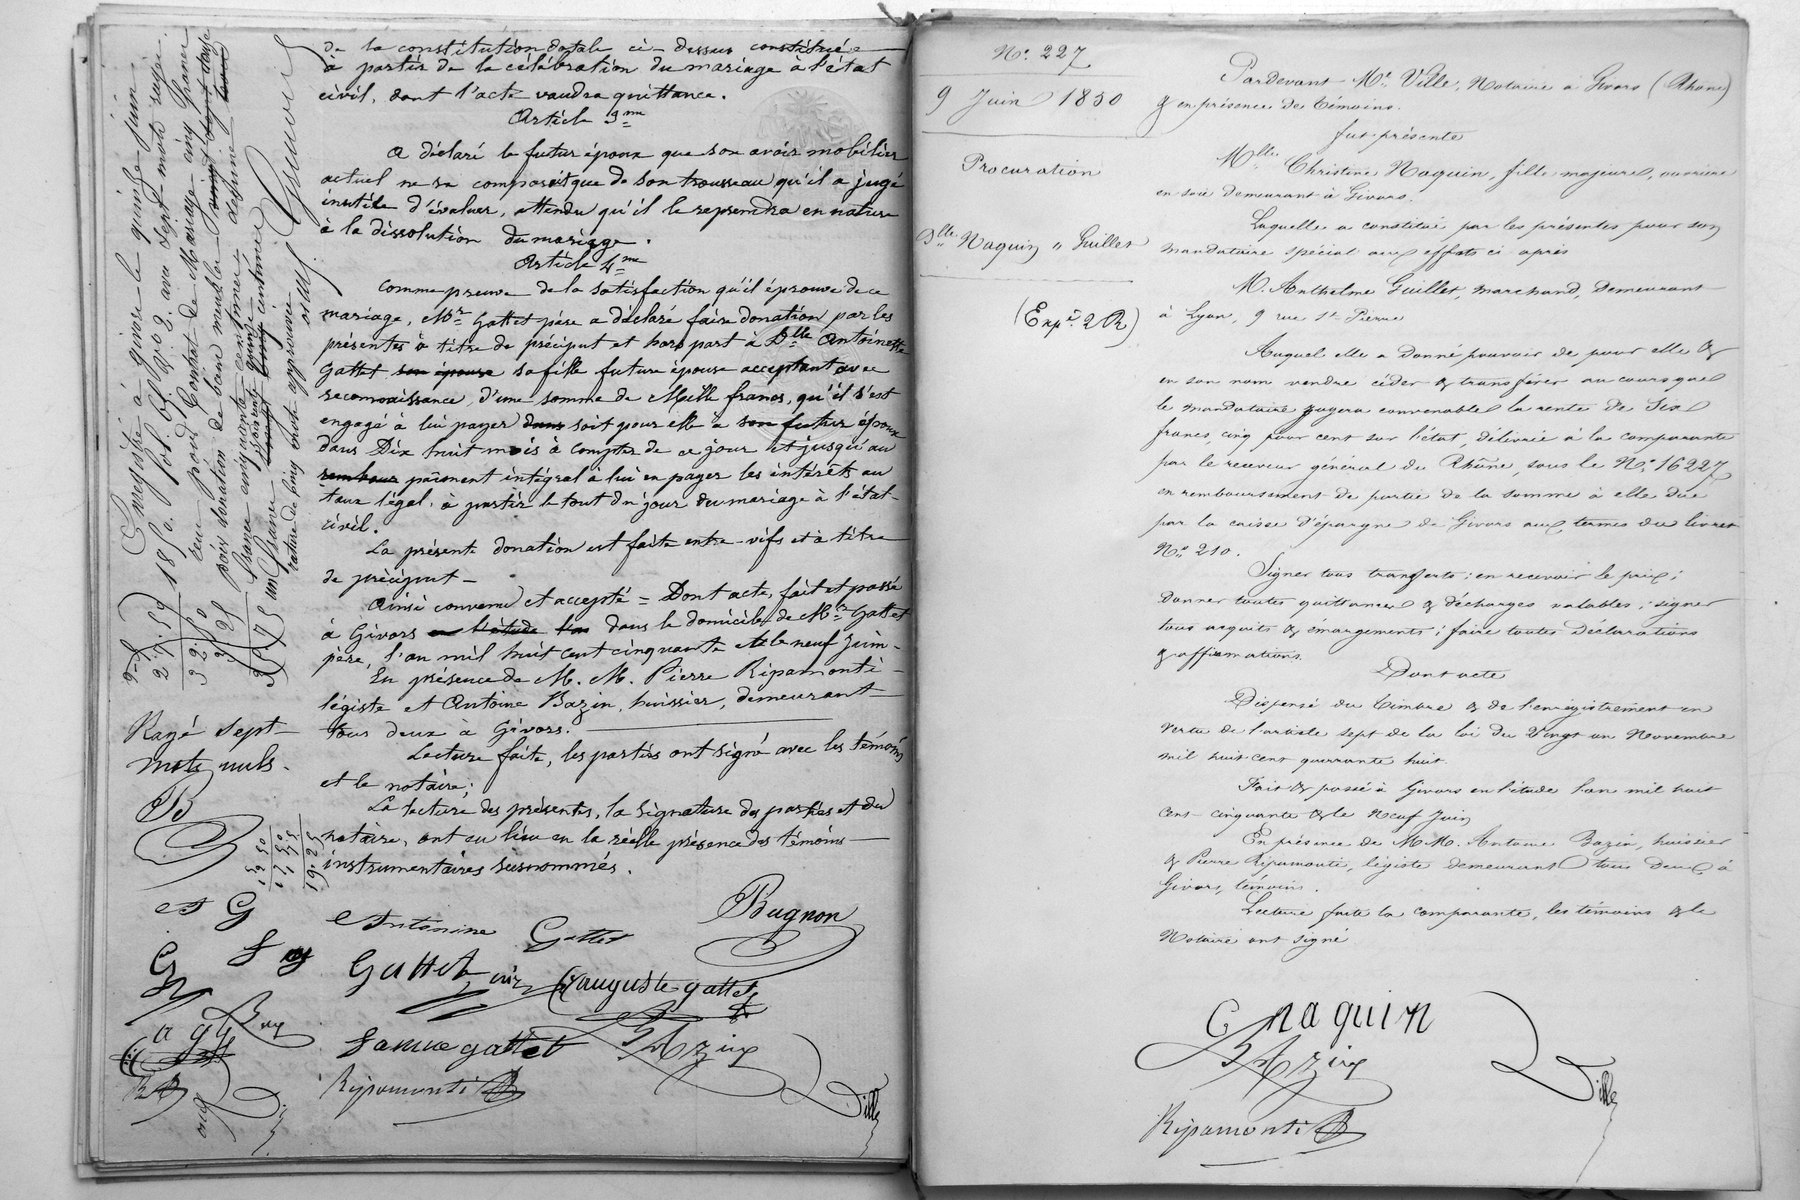 de la constitution dotale ci-dessus constituée
à partir de la célébration du mariage à l'état
civil, dont l'acte vaudra quittance.
Article 3me
A déclaré le futur époux que son avoir mobilier
actuel ne se composait que de son trousseau qu'il a jugé
inutile d'évaluer, attendu qu'il le reprendra en nature
à la dissolution du mariage.
Article 4me
Comme preuve de la satisfaction qu'il éprouve de ce
mariage, Mr Gattet père a déclaré faire donation par les
présentes à titre de préciput et hors part à Dlle Antoinette
Gattet son épouse sa fille future épouse acceptant avec
reconnaissance, d'une somme de Mille francs, qu'il s'est
engagé à lui payer dans soit pour elle à son futur époux
dans Dix huit mois à compter de ce jour et jusqu'au
rembour paiement intégral à lui en payer les intérêts au
taux légal, à partir le tout du jour du mariage à l'état-
civil.
La présente donation est faite entre-vifs et à titre
de préciput -
Ainsi convenu et accepté = Dont acte, fait et passé
à Givors en l'étude l'an dans le domicile de Mr Gattet
père, l'an mil huit cent cinquante et le neuf Juin -
En présence de M. M. Pierre Ripamonti -
légiste et Antoine Bazin, huissier, demeurant
tous deux à Givors.
Lecture faite, les parties ont signé avec les témoins
et le notaire;
La lecture des présentes, la signature des parties et du
notaire, ont eu lieu en la réelle présence des témoins
instrumentaires susnommés.
Antonine Gattet
Bugnon
Gattet
auguste gattet
gattet
BAzin
Ripamonti
Ville
Enregistré à givors le quinze juin
1850. fol. 67. avec sept mots rayés.
Reçu pour Contrat de Mariage cinq francs
Rayé sept
mots nuls.
B
et G
No. 227
9 Juin 1850
Procuration
Dlle Naquin à Guillet
(Expon 2 R)
Pardevant Me Ville, Notaire à Givors (Rhône)
& en présence de témoins.
fut présente
Mlle Christine Naquin, fille majeure, ouvrière
en soie demeurant à Givors.
Laquelle a constitué par les présentes pour son
mandataire spécial aux effets ci après
M. Anthelme Guillet, marchand, demeurant
à Lyon, 9 rue St Pierre
Auquel elle a donné pouvoir de pour elle &
en son nom vendre céder & transférer au cours que
le mandataire jugera convenable la rente de Six
francs, cinq pour cent sur l'état, délivrée à la comparante
par le receveur général du Rhône, sous le No. 16227
en remboursement de partie de la somme à elle due
par la caisse d'épargne de Givors aux termes du livret
No. 210.
Signer tous transferts; en recevoir le prix;
donner toutes quittances & décharges valables; signer
tous acquits & émargements; faire toutes déclarations
& affirmations.
Dont acte
Dispensé du timbre & de l'enregistrement en
vertu de l'article sept de la loi du Vingt un Novembre
mil huit cent quarante huit.
Fait & passé à Givors en l'étude l'an mil huit
cent cinquante & le Neuf Juin
En présence de M.M. Antoine Bazin, huissier
& Pierre Ripamonti, légiste demeurant tous deux à
Givors, témoins.
Lecture faite la comparante, les témoins & le
Notaire ont signé
C naquin
BAzin
Ville
Ripamonti